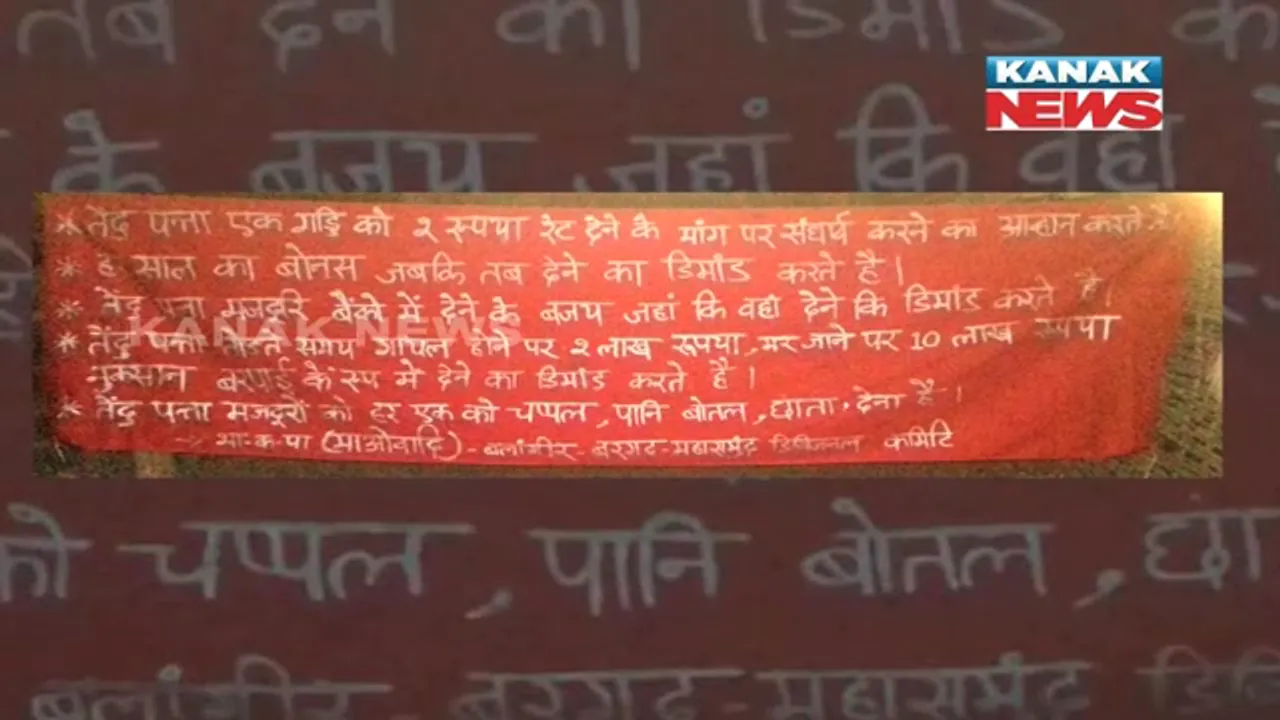 KANAK
NEWS
* तेंदु पत्ता एक गड्डि को २ रूपया रेट देने के मांग पर संघर्ष करने का आह्वान करते है।
* हे साल का बोनस जबकि तब देने का डिमांड करते है।
* तेंदु पत्ता मजदुरि बैंको में देने के बजय जहां कि वहां देने कि डिमांड करते है।
* तेंदु पत्ता तोडते समय गायल होने पर २ लाख रूपया, मर जाने पर 10 लाख रूपया
नुकसान बरपाई के रूप मे देने का डिमांड करते है।
* तेंदु पत्ता मजदुरों को हर एक को चप्पल, पानि बोतल, छाता, देना है।
→ भा·क·पा (माओवादि) - बलांगीर - बरगढ - महासमुंद डिविजनल कमिटि
KANAK NEWS
तब देने का डिमांड क
के बजय जहां कि वहां
को चप्पल, पानि बोतल, छा
बलांगीर - बरगढ - महासमुंद डि